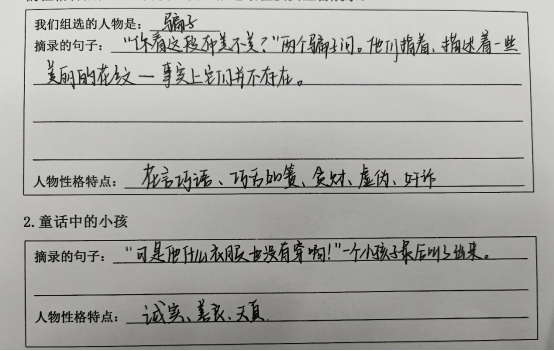 我们组选的人物是：骗子
摘录的句子："你看这段布美不美？"两个骗子问。他们指着、描述着一些
美丽的花纹—事实上它们并不存在。
人物性格特点：花言巧语、巧舌如簧、贪财、虚伪、奸诈
2.童话中的小孩
摘录的句子："可是他什么衣服也没有穿啊！"一个小孩子最后叫了出来。
人物性格特点：诚实、善良、天真